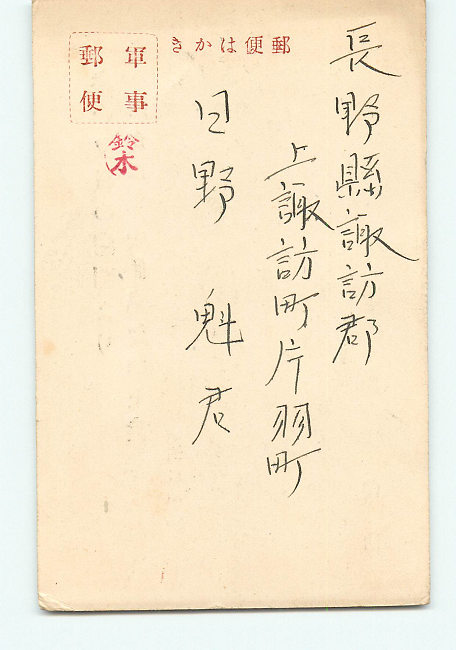 郵便はかき
軍事
郵便
鈴木
長野縣諏訪郡
上諏訪町片羽町
日野魁君